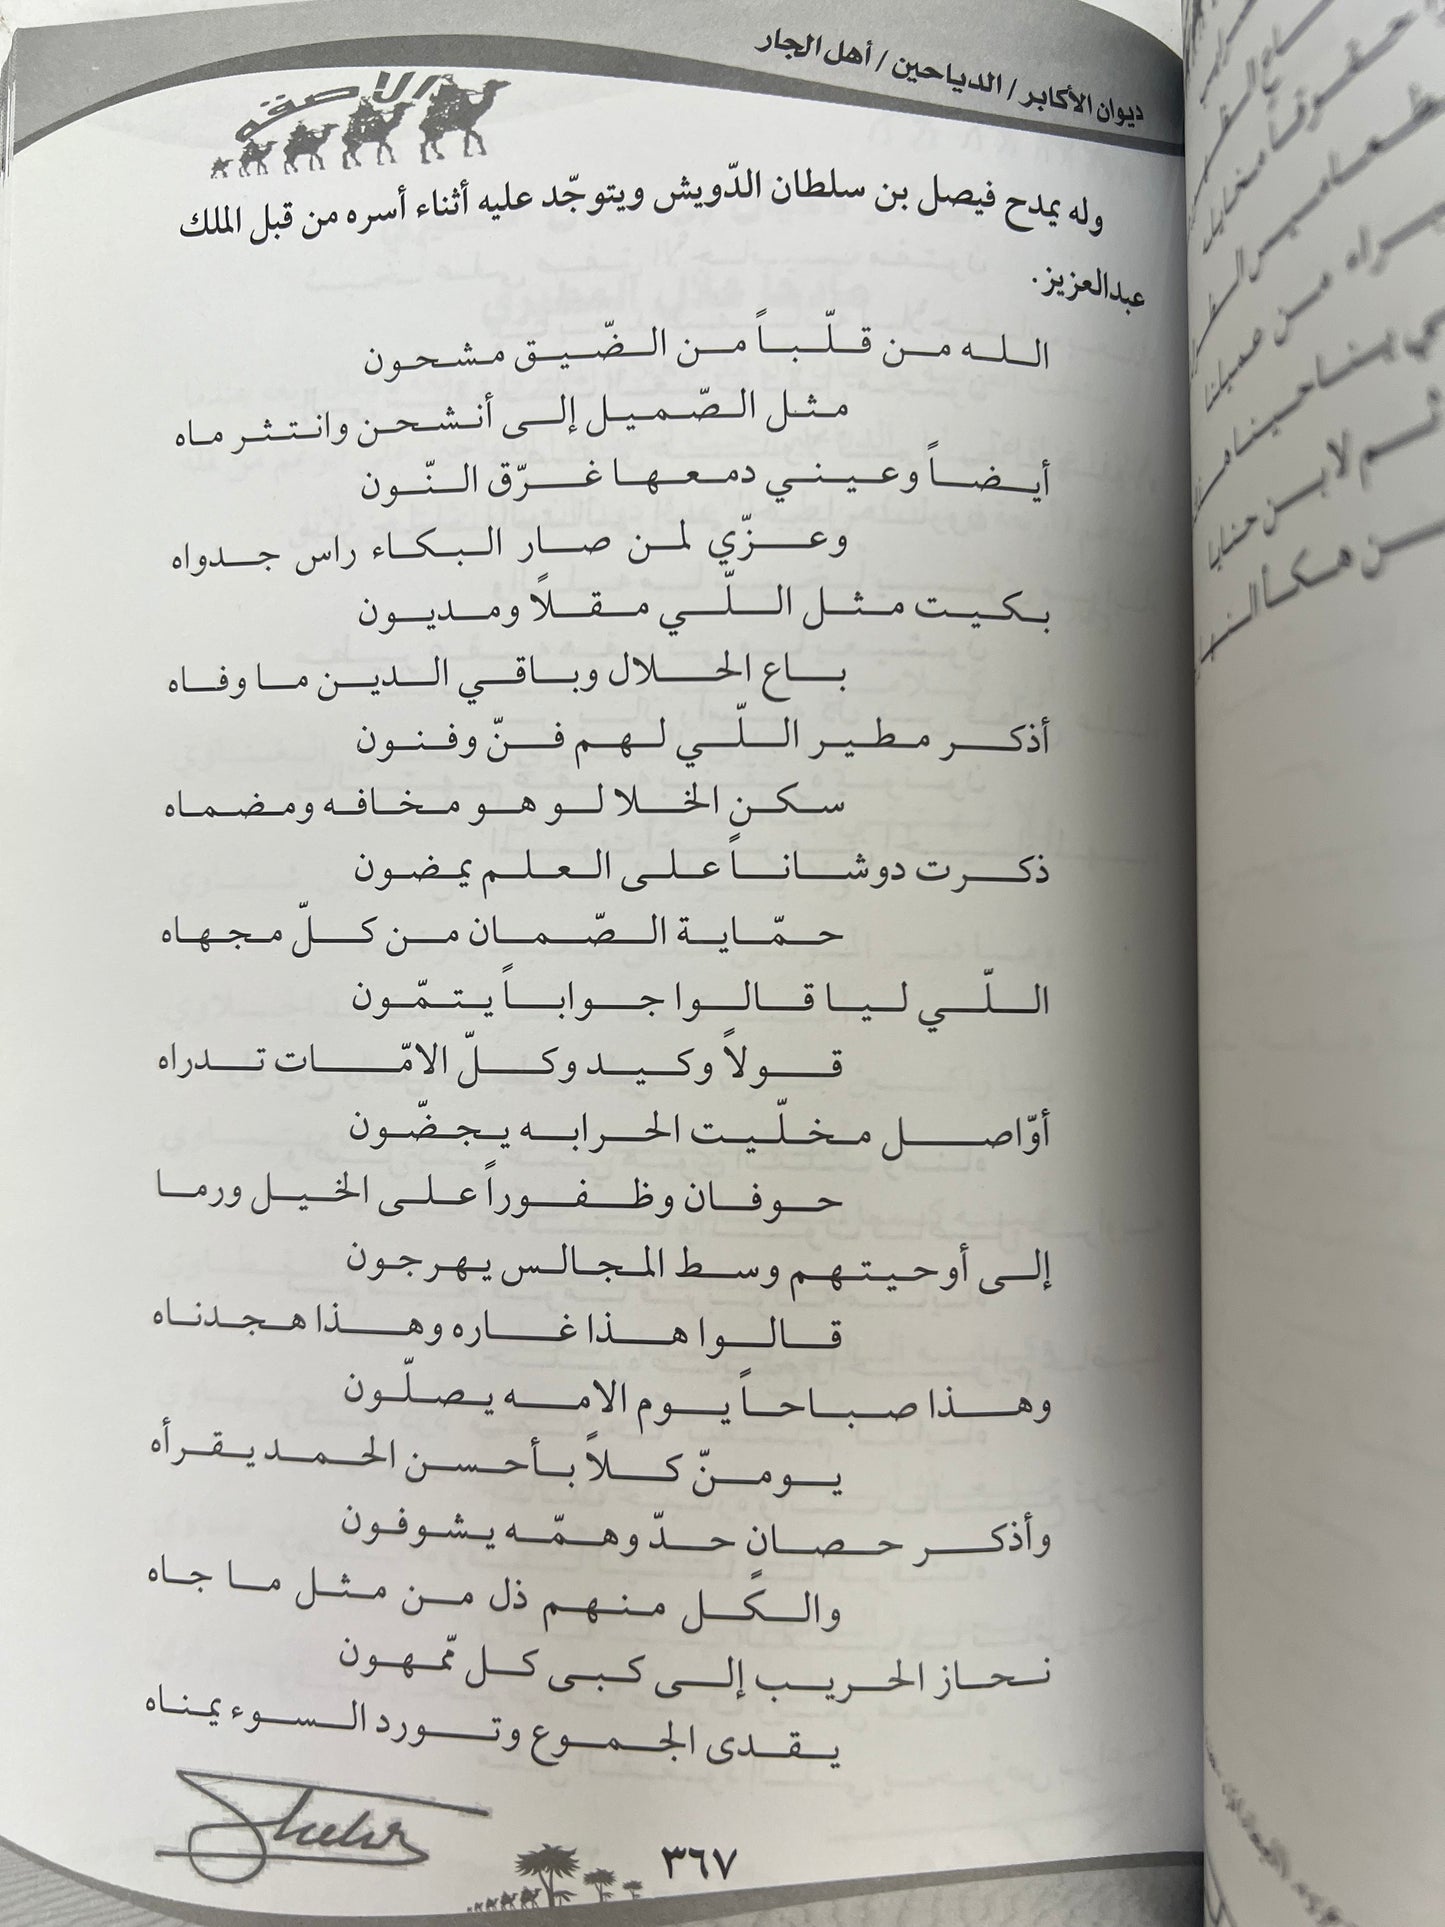 ديوان الأكابر/الدياحين/أهل الجار
الاصقه
وله يمدح فيصل بن سلطان الدّويش ويتوجّد عليه أثناء أسره من قبل الملك
عبدالعزيز.
الله من قلّباً من الضّيق مشحون
مثل الصّميل إلى أنشحن وانتثر ماه
أيضاً وعيني دمعها غرّق النّون
وعزّي لمن صار البكاء راس جدواه
بكيت مثل اللّي مقلاً ومديون
باع الحلال وباقي الدين ما وفاه
أذكر مطير اللّي لهم فنّ وفنون
سكن الخلا لو هو مخافه ومضماه
ذكرت دوشاناً على العلم يمضون
حمّاية الصّمان من كلّ مجهاه
اللّي ليا قالوا جواباً يتمّون
قولاً وكيد وكلّ الامّات تدراه
أوّاصل مخلّيت الحرابه يجضّون
حوفان وظفوراً على الخيل ورما
إلى أوحيتهم وسط المجالس يهرجون
قالوا هذا غاره وهذا هجدناه
وهذا صباحاً يوم الامه يصلّون
يومنّ كلاً بأحسن الحمد يقرأه
وأذكر حصانٍ حدّ وهمّه يشوفون
والكل منهم ذل من مثل ما جاه
نحاز الحريب إلى كبى كل ممّهون
يقدى الجموع وتورد السوء يمناه
٣٦٧